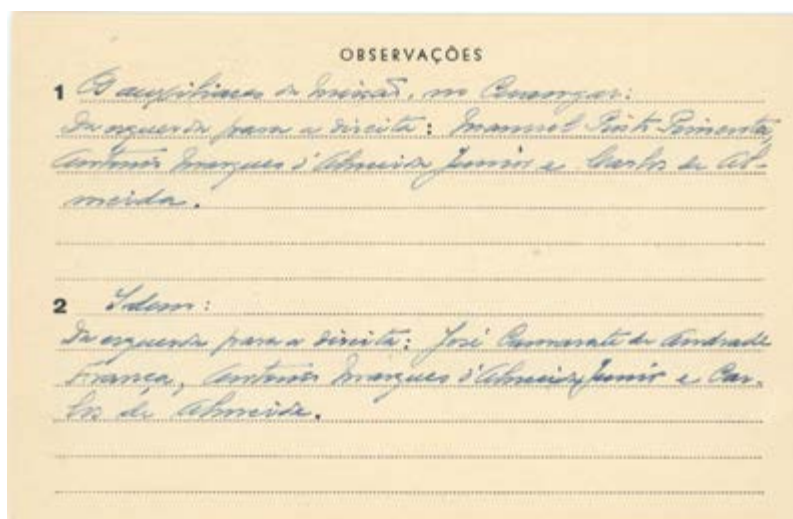 OBSERVAÇÕES
1 Os auxiliares da missão, no
Da esquerda para a direita: Manuel Pinto Pimenta,
António Marques d'Almeida Junior e Carlos de Al-
meida.
2 Idem:
Da esquerda para a direita: José Camarate de Andrade
França, António Marques d'Almeida Junior e Car-
los de Almeida.